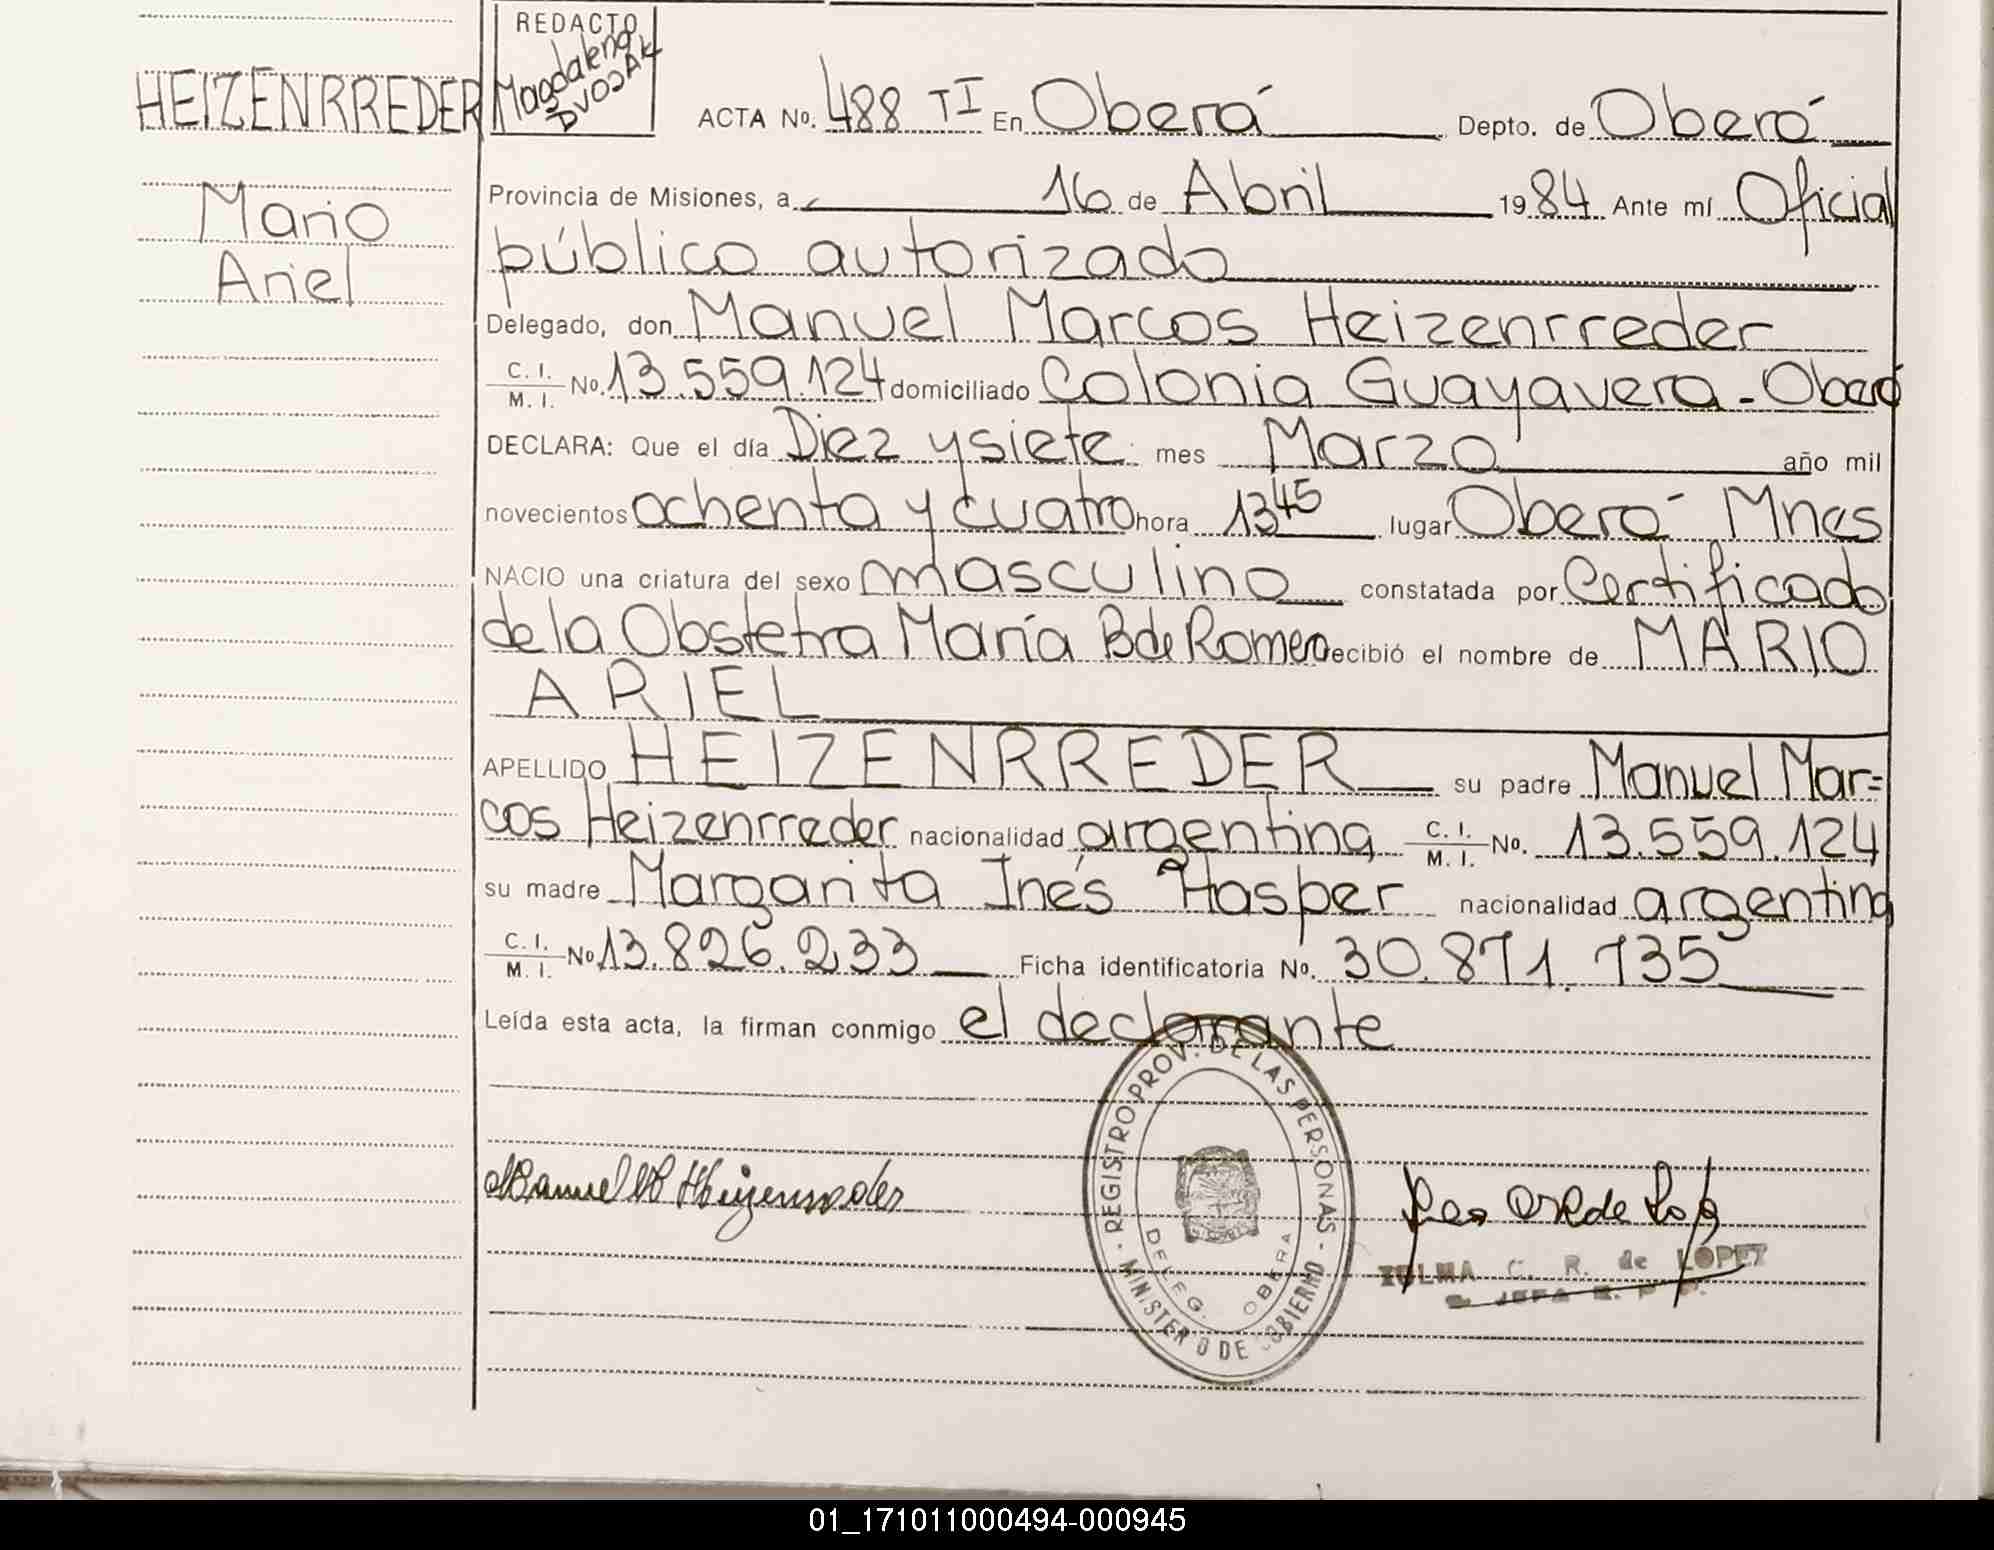 REDACTO
Magdalena
DVOJAK
HEIZENRREDER
Mario
Ariel
ACTA No. 488 TI En Oberá Depto. de Oberá
Provincia de Misiones, a 16 de Abril 1984 Ante mí Oficial
público autorizado
Delegado, don Manuel Marcos Heizenrreder
C. I.
M. I. No. 13.559.124 domiciliado Colonia Guayavera - Oberá
DECLARA: Que el día Diez y siete mes Marzo año mil
novecientos ochenta y cuatro hora 13 45 lugar Oberá Mnes
NACIO una criatura del sexo masculino constatada por Certificado
de la Obstetra María B de Romero recibió el nombre de MARIO
ARIEL
APELLIDO HEIZENRREDER su padre Manuel Mar=
cos Heizenrreder nacionalidad argentina C. I. M. I. No. 13.559.124
su madre Margarita Inés Hasper nacionalidad argentina
C. I.
M. I. No 13.826.233 Ficha identificatoria No. 30.871.735
Leída esta acta, la firman conmigo el declarante
REGISTRO PROV. DE LAS PERSONAS
DELEG. OBERA
MINISTERIO DE GOBIERNO
Manuel M Heizenrreder
ZULMA C. R. de LOPEZ
01_171011000494-000945